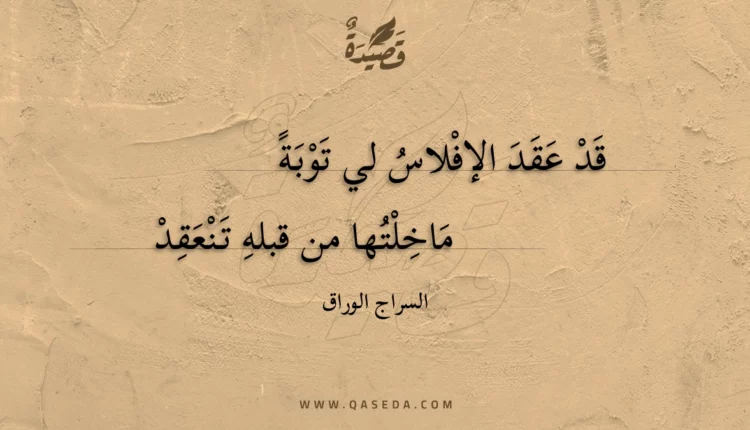 قَصِيدَةٌ
قَدْ عَقَدَ الإفْلاسُ لي تَوْبَةً
مَاخِلْتُها من قبلهِ تَنْعَقِدْ
السراج الوراق
WWW.QASEDA.COM